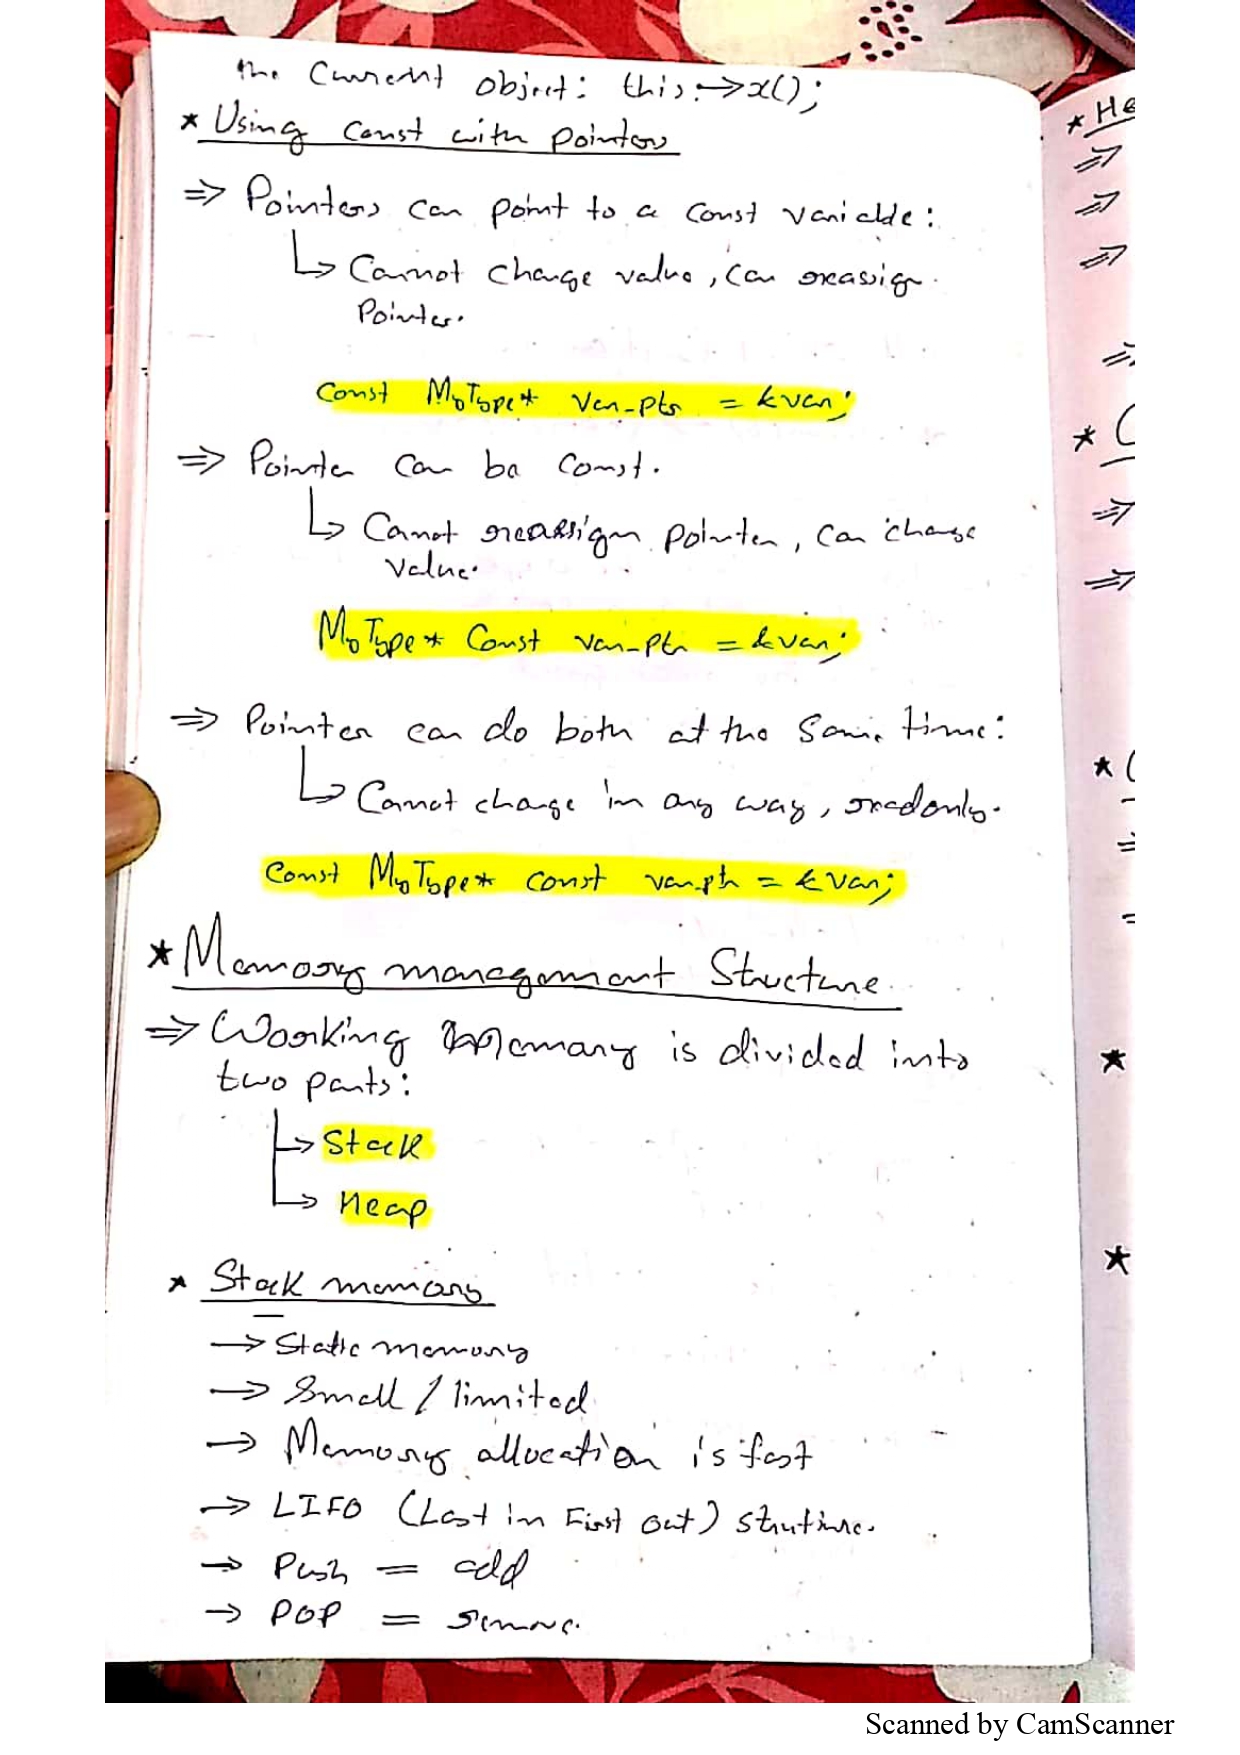 the Current object: this→x();
* Using Const with pointers
⇒ Pointers can point to a const variable:
↳ Cannot change value, can reassign
Pointer.
Const MyType* var_ptr = &var;
⇒ Pointer can be const.
↳ Cannot reassign pointer, can change
value.
MyType* Const var_ptr = &var;
⇒ Pointer can do both at the same time:
↳ Cannot change in any way, readonly.
Const MyType* const var_ptr = &var;
* Memory management Structure
⇒ Working memory is divided into
two parts:
↳ Stack
↳ Heap
* Stack memory
→ Static memory
→ Small / limited
→ Memory allocation is fast
→ LIFO (Last in First out) struture.
→ Push = add
→ POP = remove.
* He
Scanned by CamScanner